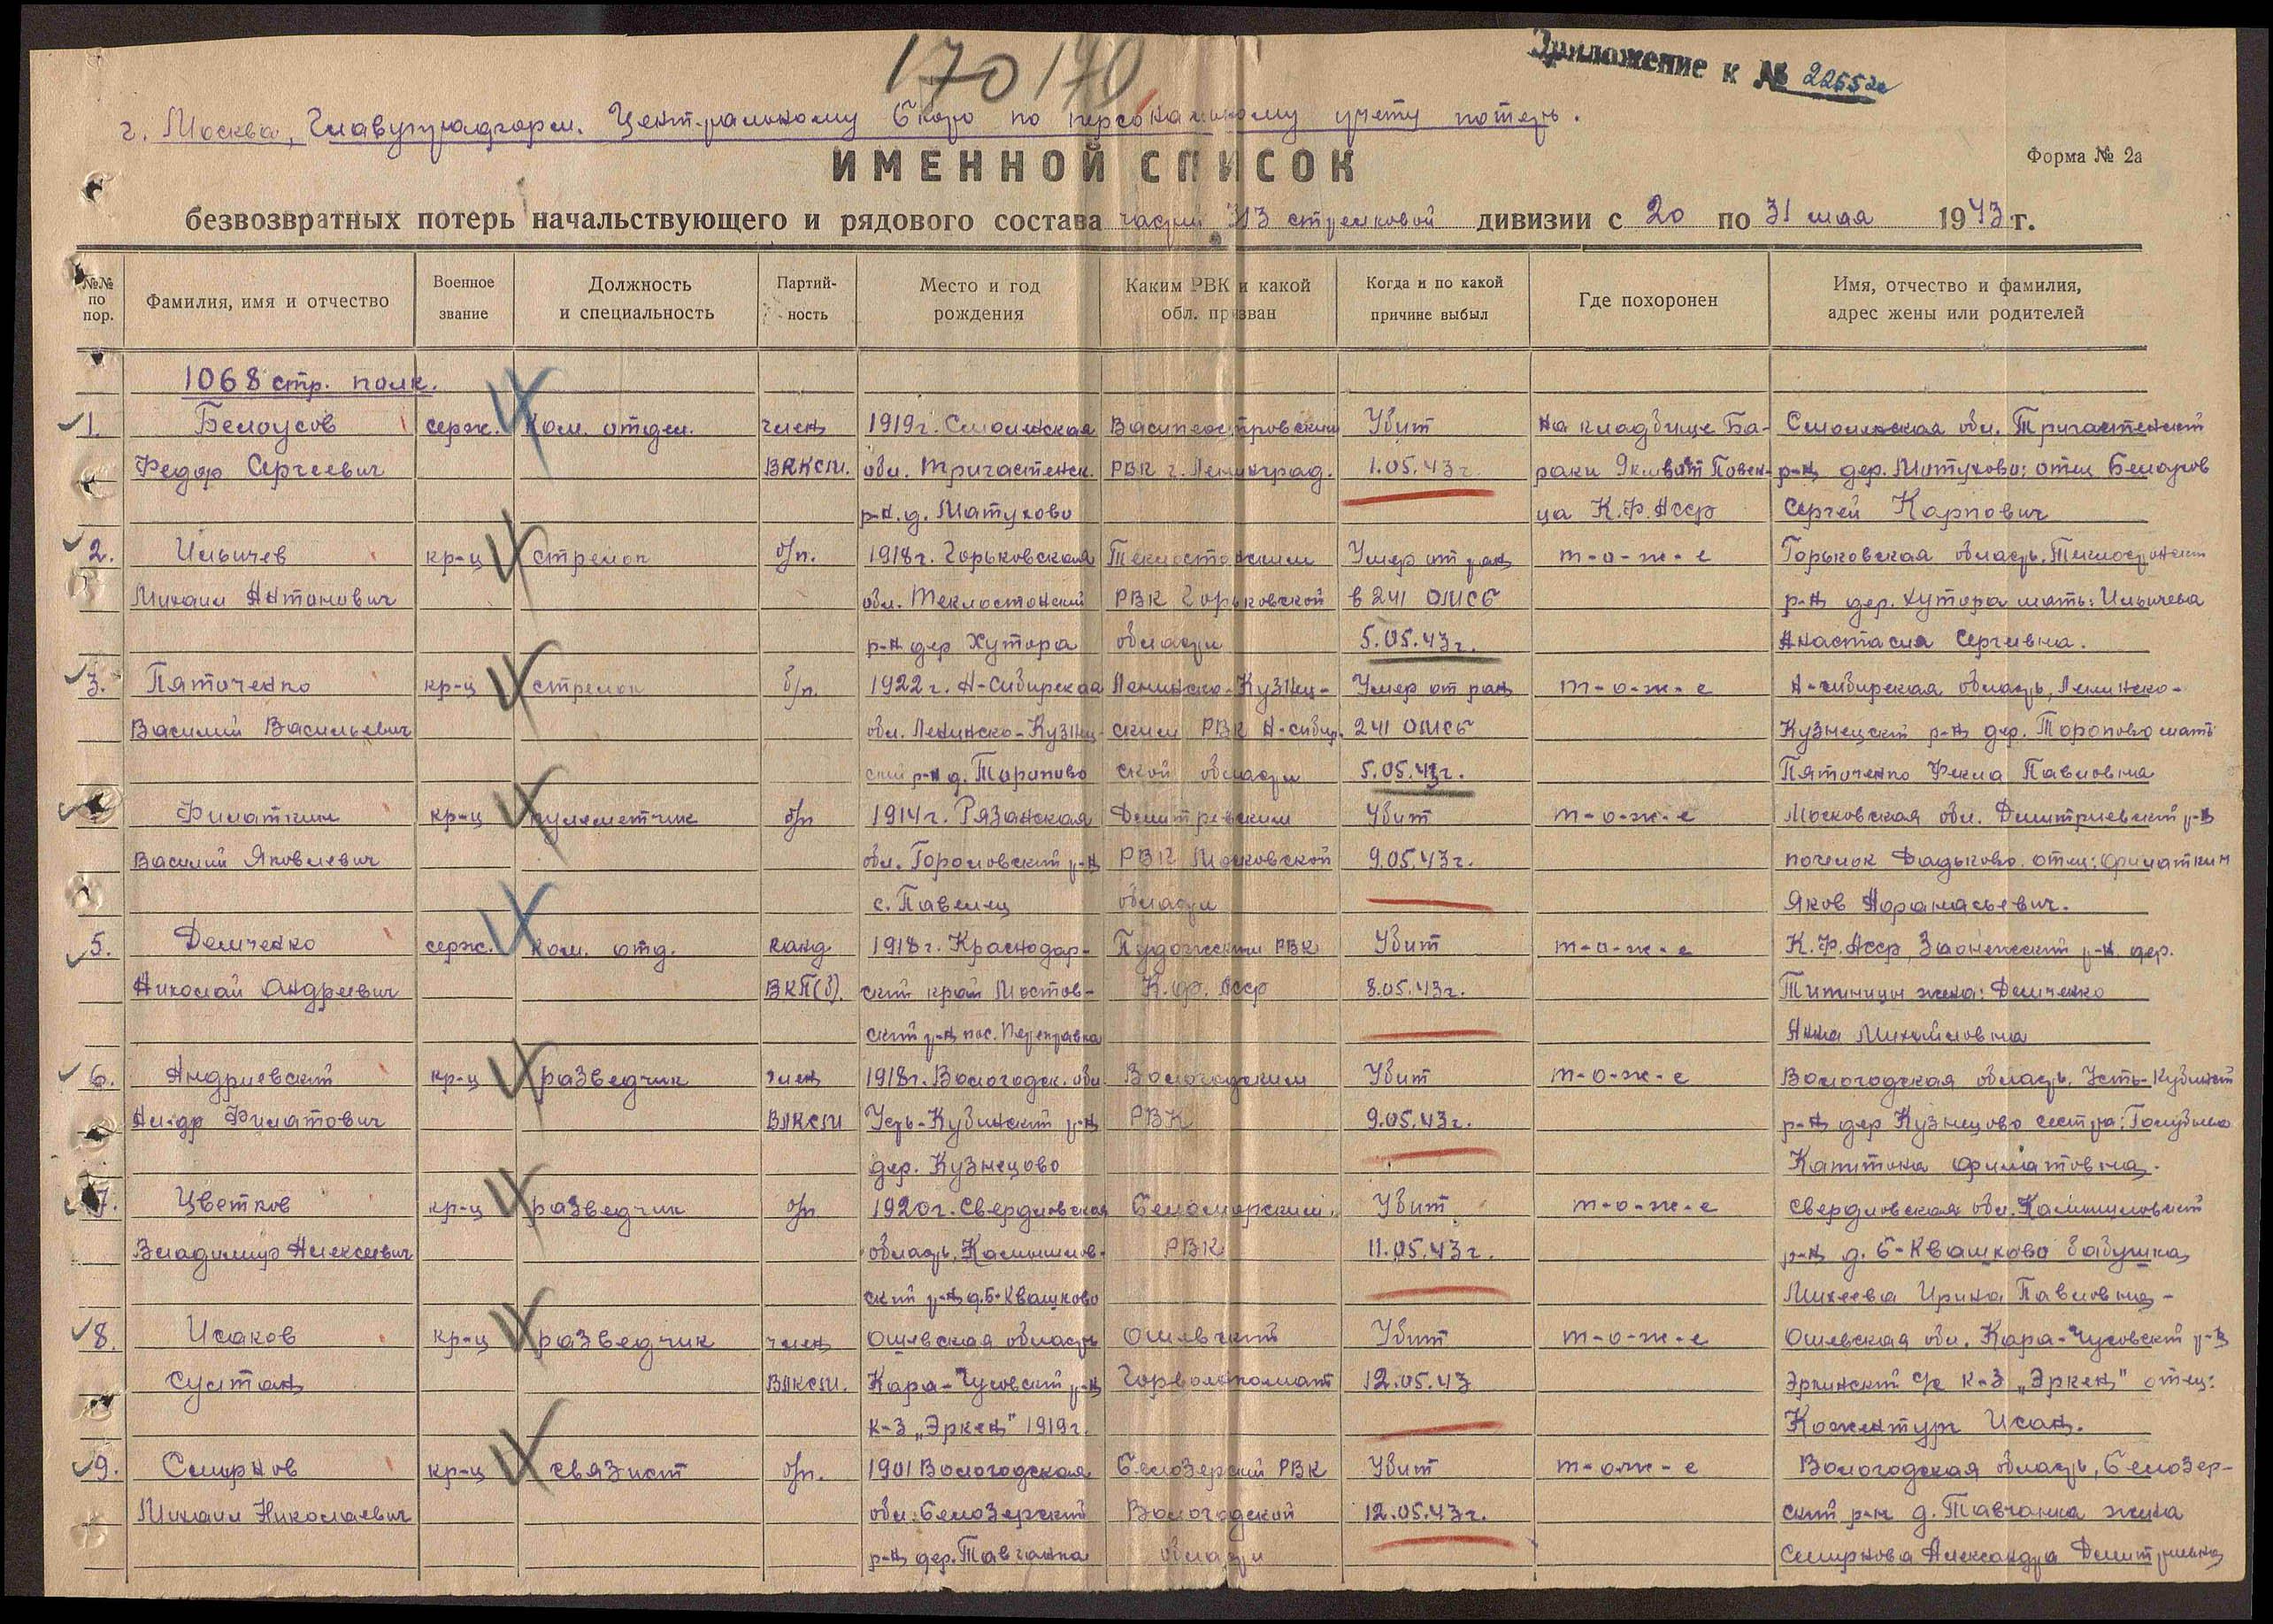 170 170
Приложение к № 22552с
г. Москва, Главупрадформ. Центральному бюро по персональному учету потерь.
ИМЕННОЙ СПИСОК
Форма № 2а
безвозвратных потерь начальствующего и рядового состава частей 313 стрелковой дивизии с 20 по 31 мая 1943 г.
№№ по пор.
Фамилия, имя и отчество
Военное звание
Должность и специальность
Партий-ность
Место и год рождения
Каким РВК и какой обл. призван
Когда и по какой причине выбыл
Где похоронен
Имя, отчество и фамилия, адрес жены или родителей
1068 стр. полк.
1. Белоусов серж. Ком. отдел. член 1919 г. Смоленская Василеостровским Убит На кладбище Ба- Смоленская обл. Тригастенский
Федор Сергеевич ВЛКСМ. обл. Тригастенск. РВК г. Ленинград. 1.05.43 г. раки Повен- р-н дер. Матуково: отец Белоусов
р-н. д. Матуково ца К.Ф.АССР Сергей Карпович
2. Ильичев кр-ц стрелок б/п. 1918 г. Горьковская Теклостонским Умер от ран т-о-ж-е Горьковская область, Теклостонский
Михаил Антонович обл. Теклостонский РВК Горьковской в 241 ОМСБ р-н дер. Хутора мать: Ильичева
р-н дер Хутора области 5.05.43 г. Анастасия Сергевна.
3. Пяточенко кр-ц стрелок б/п. 1922 г. Н-Сибирская Ленинско-Кузнец- Умер от ран т-о-ж-е Н-сибирская область, Ленинско-
Василий Васильевич обл. Ленинско-Кузнец- ским РВК Н-сибир. 241 ОМСБ Кузнецский р-н дер. Торопово мать
ский р-н д. Торопово ской области 5.05.43 г. Пяточенко Фекла Павловна
4. Филаткин кр-ц пулеметчик б/п 1914 г. Рязанская Дмитревским Убит т-о-ж-е Московская обл. Дмитриевский р-н
Василий Яковлевич обл. Горловский р-н РВК Московской 9.05.43 г. поселок Дадьково. отец: Филаткин
с. Павелец области Яков Афанасьевич.
5. Демченко серж. ком. отд. канд 1918 г. Краснодар- Пудожским РВК Убит т-о-ж-е К.Ф.АССР, Заонежский р-н. дер.
Николай Андреевич ВКП(б). ский край Мостов- К.Ф. АССР 8.05.43 г. Типиницы жена: Демченко
ский р-н пос. Переправка Анна Михайловна
6. Андриевский кр-ц разведчик член 1918 г. Вологодск. обл. Вологодским Убит т-о-ж-е Вологодская область, Усть-Кубинский
Ал-др Филатович ВЛКСМ Усть-Кубинский р-н РВК 9.05.43 г. р-н дер Кузнецово сестра: Голубева
дер. Кузнецово Капитона Филатовна.
7. Цветков кр-ц разведчик б/п 1920 г. Свердловская Беломорским. Убит т-о-ж-е Свердловская обл. Камышловский
Владимир Алексеевич область, Камышлов- РВК 11.05.43 г. р-н д. Б-Квашково бабушка
ский р-н д. Б-Квашково Михеева Ирина Павловна-
8. Исаков кр-ц разведчик член Ошевская область Ошевский Убит т-о-ж-е Ошевская обл. Кара-Чусовский р-н
Султан ВЛКСМ. Кара-Чусовский р-н Горвоенкомат 12.05.43 Эркинский с/с к-з „Эркен" отец:
к-з „Эркен" 1919 г. Кожентур Исан.
9. Смирнов кр-ц связист б/п. 1901 Вологодская Белозерский РВК Убит т-о-ж-е Вологодская область, Белозер-
Михаил Николаевич обл. Белозерский Вологодской 12.05.43 г. ский р-н д. Тавчанка жена
р-н дер. Тавчанка области Смирнова Александра Дмитриевна